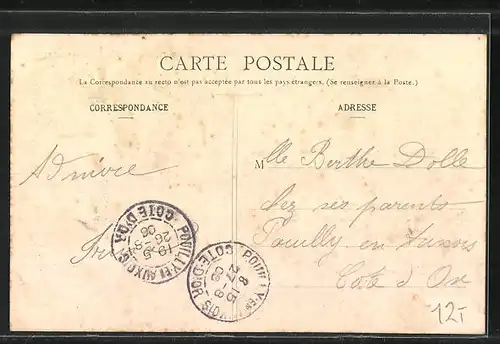 CARTE POSTALE
La Correspondance au recto n'est pas acceptée par tous les pays étrangers. (Se renseigner à la Poste.)
CORRESPONDANCE
ADRESSE
Mlle Berthe Dolle
chez ses parents
Pouilly en Auxois
Côte d'Or
POUILLY-EN-AUXOIS
19-5
26-8
06
COTE-D'OR
POUILLY-EN-AUXOIS
8-15
27-8
COTE-D'OR
12-